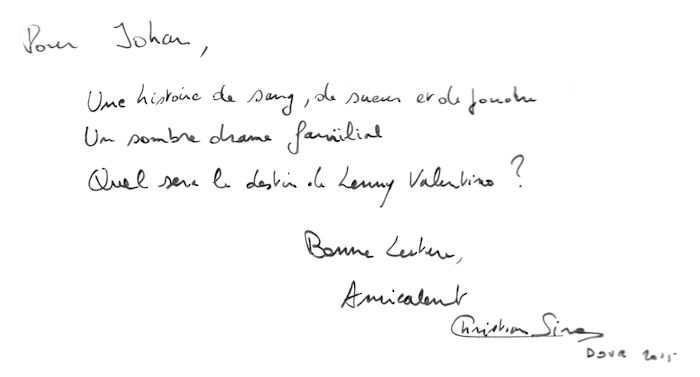 Pour Johan,
Une histoire de sang, de sueur et de foudre
Un sombre drame familial
Quel sera le destin de Lenny Valentino ?
Bonne Lecture,
Amicalent
Christian
2015